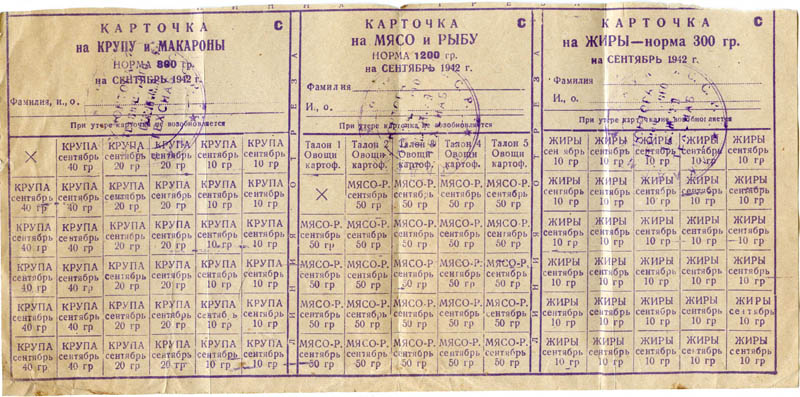 КАРТОЧКА С
на КРУПУ и МАКАРОНЫ
НОРМА 800 гр.
на СЕНТЯБРЬ 1942 г.
Фамилия, и., о.
При утере карточка не возобновляется
× КРУПА КРУПА КРУПА КРУПА КРУПА
сентябрь сентябрь сентябрь сентябрь сентябрь
40 гр 20 гр 20 гр 10 гр 10 гр
КРУПА КРУПА КРУПА КРУПА КРУПА КРУПА
сентябрь сентябрь сентябрь сентябрь сентябрь сентябрь
40 гр 40 гр 20 гр 20 гр 10 гр 10 гр
КРУПА КРУПА КРУПА КРУПА КРУПА КРУПА
сентябрь сентябрь сентябрь сентябрь сентябрь сентябрь
40 гр 40 гр 20 гр 20 гр 10 гр 10 гр
КРУПА КРУПА КРУПА КРУПА КРУПА КРУПА
сентябрь сентябрь сентябрь сентябрь сентябрь сентябрь
40 гр 40 гр 20 гр 20 гр 10 гр 10 гр
КРУПА КРУПА КРУПА КРУПА КРУПА КРУПА
сентябрь сентябрь сентябрь сентябрь сентябрь сентябрь
40 гр 40 гр 20 гр 20 гр 10 гр 10 гр
КРУПА КРУПА КРУПА КРУПА КРУПА КРУПА
сентябрь сентябрь сентябрь сентябрь сентябрь сентябрь
40 гр 40 гр 20 гр 20 гр 10 гр 10 гр
ЛИНИЯ ОТРЕЗА
КАРТОЧКА С
на МЯСО и РЫБУ
НОРМА 1200 гр.
на СЕНТЯБРЬ 1942 г.
Фамилия
И., о.
При утере карточка не возобновляется
Талон 1 Талон 2 Талон 3 Талон 4 Талон 5
Овощи Овощи Овощи Овощи Овощи
картоф. картоф. картоф. картоф. картоф.
× МЯСО-Р. МЯСО-Р. МЯСО-Р. МЯСО-Р.
сентябрь сентябрь сентябрь сентябрь
50 гр 50 гр 50 гр 50 гр
МЯСО-Р. МЯСО-Р. МЯСО-Р. МЯСО-Р. МЯСО-Р.
сентябрь сентябрь сентябрь сентябрь сентябрь
50 гр 50 гр 50 гр 50 гр 50 гр
МЯСО-Р. МЯСО-Р. МЯСО-Р. МЯСО-Р. МЯСО-Р.
сентябрь сентябрь сентябрь сентябрь сентябрь
50 гр 50 гр 50 гр 50 гр 50 гр
МЯСО-Р. МЯСО-Р. МЯСО-Р. МЯСО-Р. МЯСО-Р.
сентябрь сентябрь сентябрь сентябрь сентябрь
50 гр 50 гр 50 гр 50 гр 50 гр
МЯСО-Р. МЯСО-Р. МЯСО-Р. МЯСО-Р. МЯСО-Р.
сентябрь сентябрь сентябрь сентябрь сентябрь
50 гр 50 гр 50 гр 50 гр 50 гр
ЛИНИЯ ОТРЕЗА
КАРТОЧКА С
на ЖИРЫ—норма 300 гр.
на СЕНТЯБРЬ 1942 г.
Фамилия
И., о.
При утере карточка не возобновляется
ЖИРЫ ЖИРЫ ЖИРЫ ЖИРЫ ЖИРЫ
сентябрь сентябрь сентябрь сентябрь сентябрь
10 гр 10 гр 10 гр 10 гр 10 гр
ЖИРЫ ЖИРЫ ЖИРЫ ЖИРЫ ЖИРЫ
сентябрь сентябрь сентябрь сентябрь сентябрь
10 гр 10 гр 10 гр 10 гр 10 гр
ЖИРЫ ЖИРЫ ЖИРЫ ЖИРЫ ЖИРЫ
сентябрь сентябрь сентябрь сентябрь сентябрь
10 гр 10 гр 10 гр 10 гр 10 гр
ЖИРЫ ЖИРЫ ЖИРЫ ЖИРЫ ЖИРЫ
сентябрь сентябрь сентябрь сентябрь сентябрь
10 гр 10 гр 10 гр 10 гр 10 гр
ЖИРЫ ЖИРЫ ЖИРЫ ЖИРЫ ЖИРЫ
сентябрь сентябрь сентябрь сентябрь сентябрь
10 гр 10 гр 10 гр 10 гр 10 гр
ЖИРЫ ЖИРЫ ЖИРЫ ЖИРЫ ЖИРЫ
сентябрь сентябрь сентябрь сентябрь сентябрь
10 гр 10 гр 10 гр 10 гр 10 гр